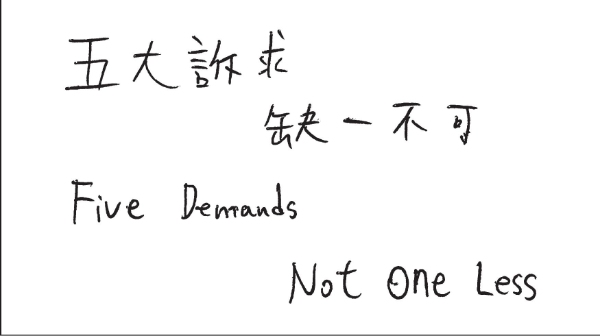 五大訴求
缺一不可
Five Demands
Not One Less